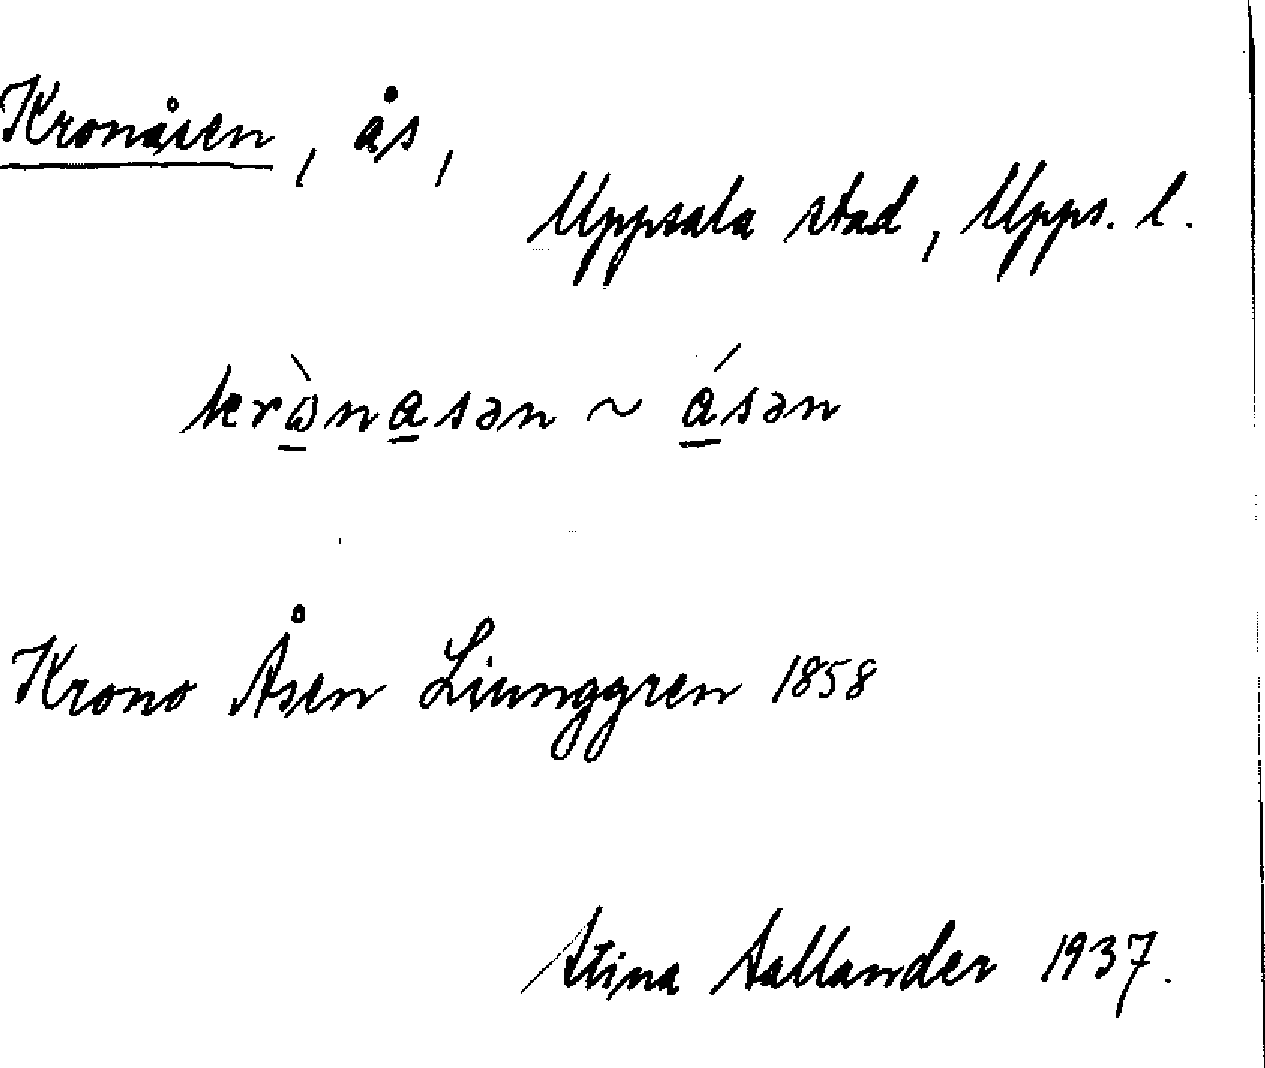 Kronåsen, ås,
Uppsala stad, Upps. l.
krὼ̱na̱sən ~ á̱sən
Krono Åsen Liunggren 1858
Stina Sallander 1937.